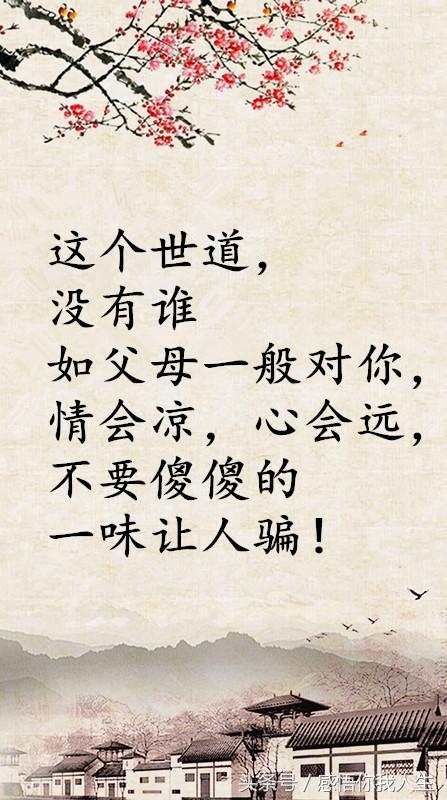 这个世道，
没有谁
如父母一般对你，
情会凉，心会远，
不要傻傻的
一味让人骗！
头条号／感悟你我人生